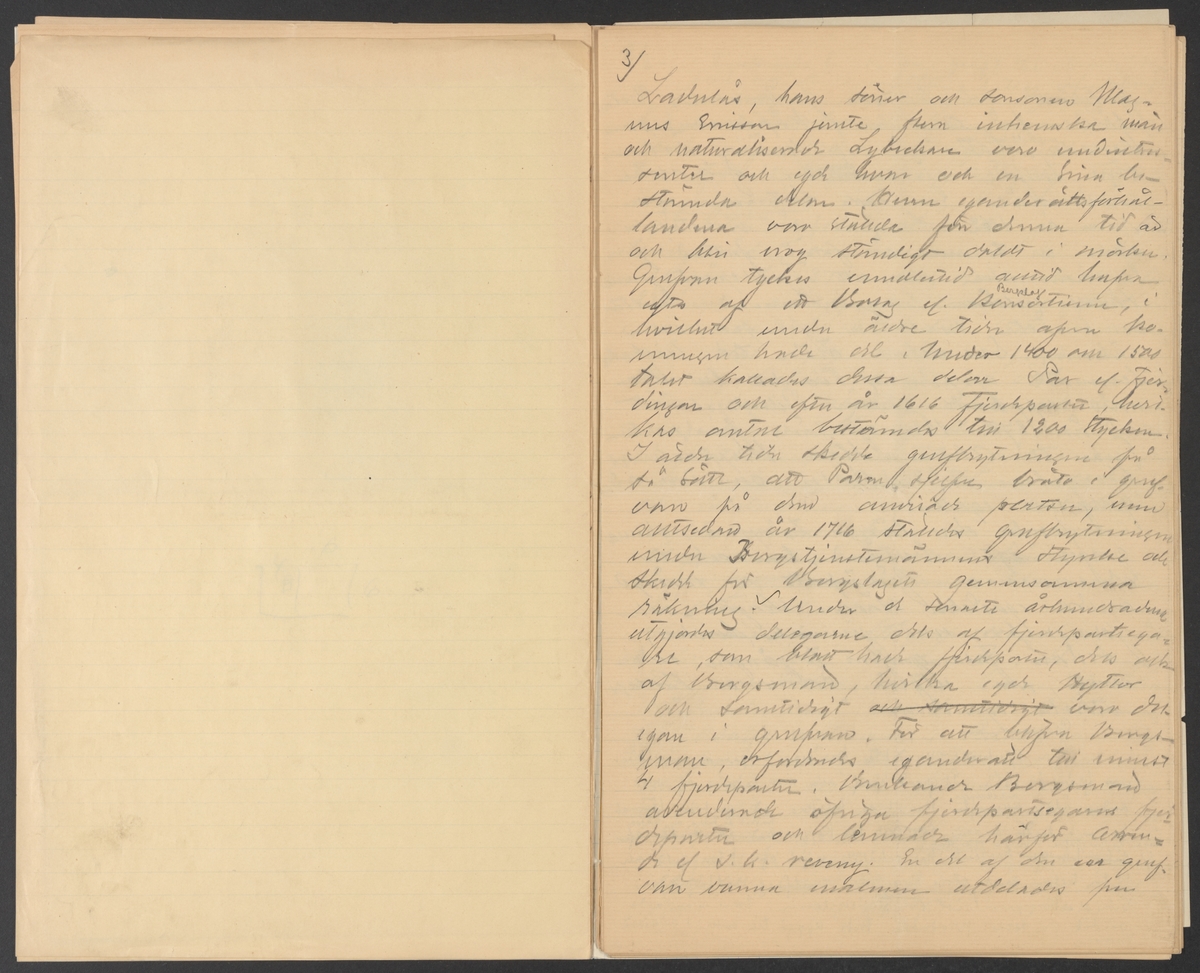 3/
Ladulås, hans söner och sonsonen Mag-
nus Ericson jemte flera inhemska män
och naturaliserade Lybeckare voro med intres-
senter och egde hvar och en sina be-
stämda delar. Huru eganderättsförhål-
landena voro stälda före denna tid är
och blir nog ständigt doldt i mörker.
Grufvan tyckes emellertid alltid hafva
egts af ett Bolag el. Bergslag Konsortium, i
hvilket under äldre tider äfven ko-
nungen hade del. Under 1400 och 1500
talet kallades dessa delar Par el. Fjer-
dingar och efter år 1616 Fjerdeparter, hvil-
kas antal bestämdes till 1200 stycken.
I äldre tider skedde grufbrytningen på
så sätt, att Paren sjelfva bröto i gruf-
van på dem anvisade platser, men
alltsedan år 1716 stäldes grufbrytningen
under Bergstjenstemännens styrelse och
skedde för Bergslagets gemensamma
räkning. Under de senaste århundradena
utgjordes delegarne dels af fjerdepartsega-
re, som blott hade fjerdeparter, dels och
af Bergsmän, hvilka egde Hyttor
och samtidigt och samtidigt voro del-
egare i grufvan. För att blifva Bergs-
man, erfordrades eganderätt till minst
4 fjerdeparter. Brukande Bergsmän
använde öfriga fjerdepartsegares fjer-
departer och lemnade härför arren-
de el s.k. raveny. En del af den ur gruf-
van vunna malmen utdelades per